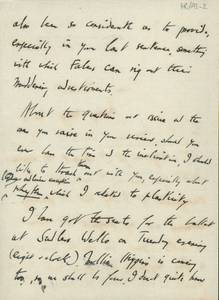 also been so considerate as to provide,
especially in your last sentence, something
with which Faber can rig out their
advertisements.
About the question you raise at the
in your review, should you
ever have the time & the inclination, I should
like to thrash out with you, especially what
rhythm which I related to plasticity.
I have got the seats for the ballet
at Sadlers Wells on Tuesday evening
(eight o'clock). Higgins is coming
too, so we shall be four, I don't quite know